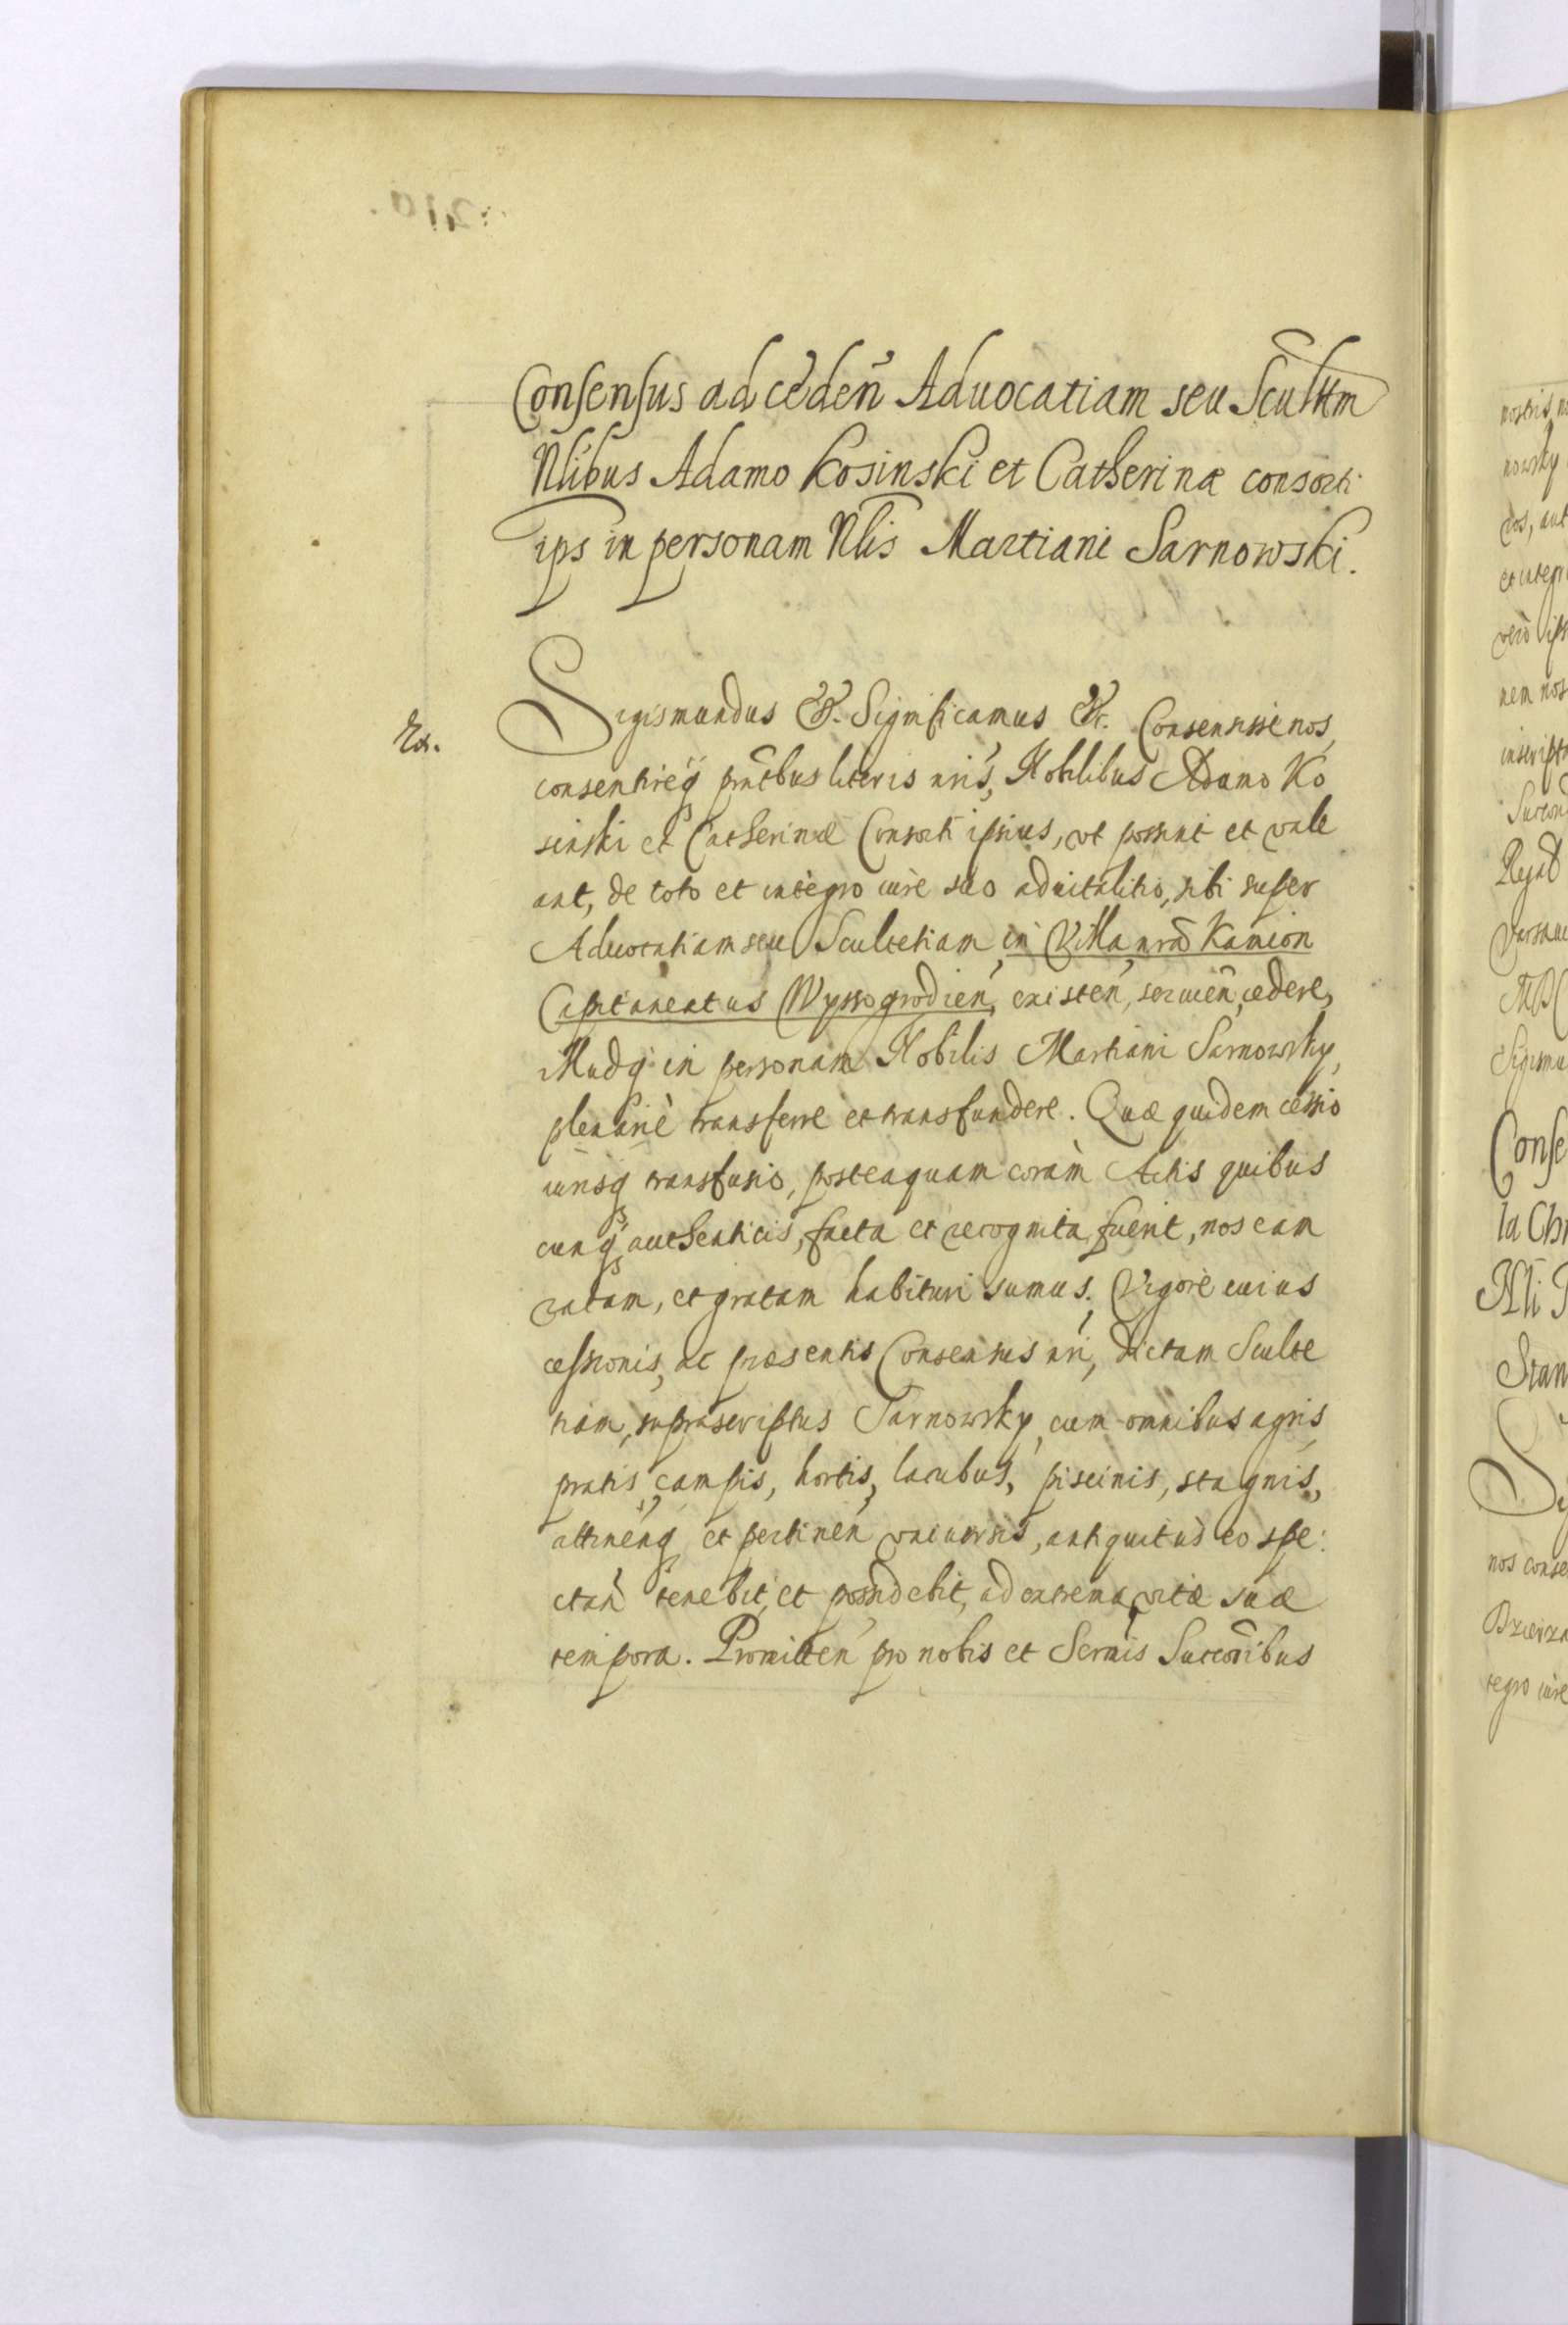 Consensus ad cedeñ Aduocatiam seu Scultm
Nlibus Adamo Kosinski et Catherinæ consorti
ips in personam Nlis Martiani Sarnowski.
Ex. Sigismundus &. Significamus &c. Consensisse nos,
consentireq pntbus literis nris, Nobilibus Adamo Ko
sinski et Catherinæ Consorti ipsius, vt possint et vale
ant, de toto et integro iure suo aduitalitio, sibi super
Aduocatiam seu Scultetiam in Villa nra Kamion
Capitaneatus Wyssogrodien, existen, seruien, cedere,
illudq in personam Nobilis Martiani Sarnowsky,
plenariè transferre et transfundere. Quæ quidem cessio
iurisq transfusio, posteaquam coram Actis quibus
cunq authenticis, facta et recognita fuerit, nos eam
ratam, et gratam habituri sumus. Vigore cuius
cessionis, ac præsentis Consensus nri, dictam Sculte
tiam, suprascriptus Sarnowsky, cum omnibus agris,
pratis, campis, hortis, lacubus, piscinis, stagnis,
attinenq et pertinen vniuersis, antiquitùs eo spe:
ctan tenebit, et possidebit, ad extrema vitæ suæ
tempora. Promitten pro nobis et Sermis Succoribus